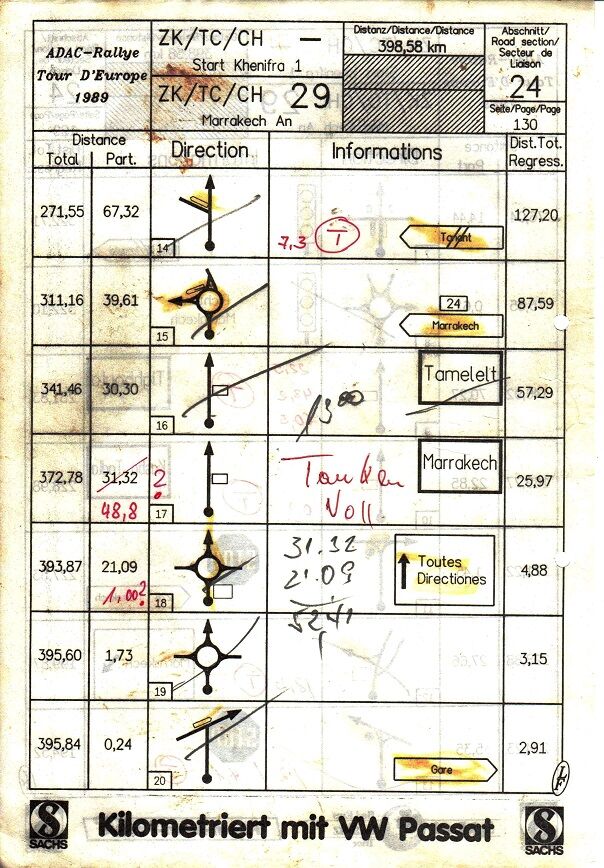 ADAC-Rallye
Tour D'Europe
1989
ZK/TC/CH —
Start Khenifra 1
ZK/TC/CH 29
Marrakech An
Distanz/Distance/Distance
398,58 km
Abschnitt/
Road section/
Secteur de
Liaison
24
Seite/Page/Page
130
Distance
Total Part.
Direction
Informations
Dist.Tot.
Regress.
271,55 67,32
14
7,3 T
127,20
311,16 39,61
15
24
Marrakech
87,59
341,46 30,30
16
13 00
Tamelelt
57,29
372,78 31,32 ?
48,8
17
Tanken
Voll.
Marrakech
25,97
393,87 21,09
1,00?
18
31.32
21.09
52.41
Toutes
Directiones
4,88
395,60 1,73
19
3,15
395,84 0,24
20
Gare
2,91
SACHS
Kilometriert mit VW Passat
SACHS